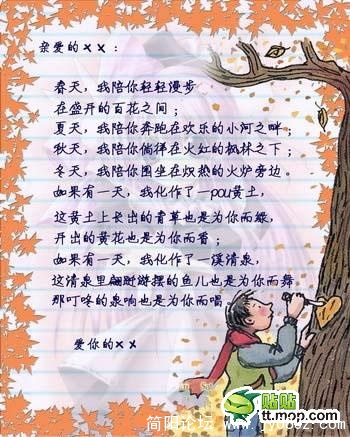 亲爱的××：
春天，我陪你轻轻漫步
在盛开的百花之间；
夏天，我陪你奔跑在欢乐的小河之畔；
秋天，我陪你徜徉在火红的枫林之下；
冬天，我陪你围坐在炽热的火炉旁边。
如果有一天，我化作了一pou黄土，
这黄土上长出的青草也是为你而绿，
开出的黄花也是为你而香；
如果有一天，我化作了一溪清泉，
这清泉里翩跹游摆的鱼儿也是为你而舞
那叮咚的泉响也是为你而唱。
爱你的××
贴贴
tt.mop.com
简阳论坛